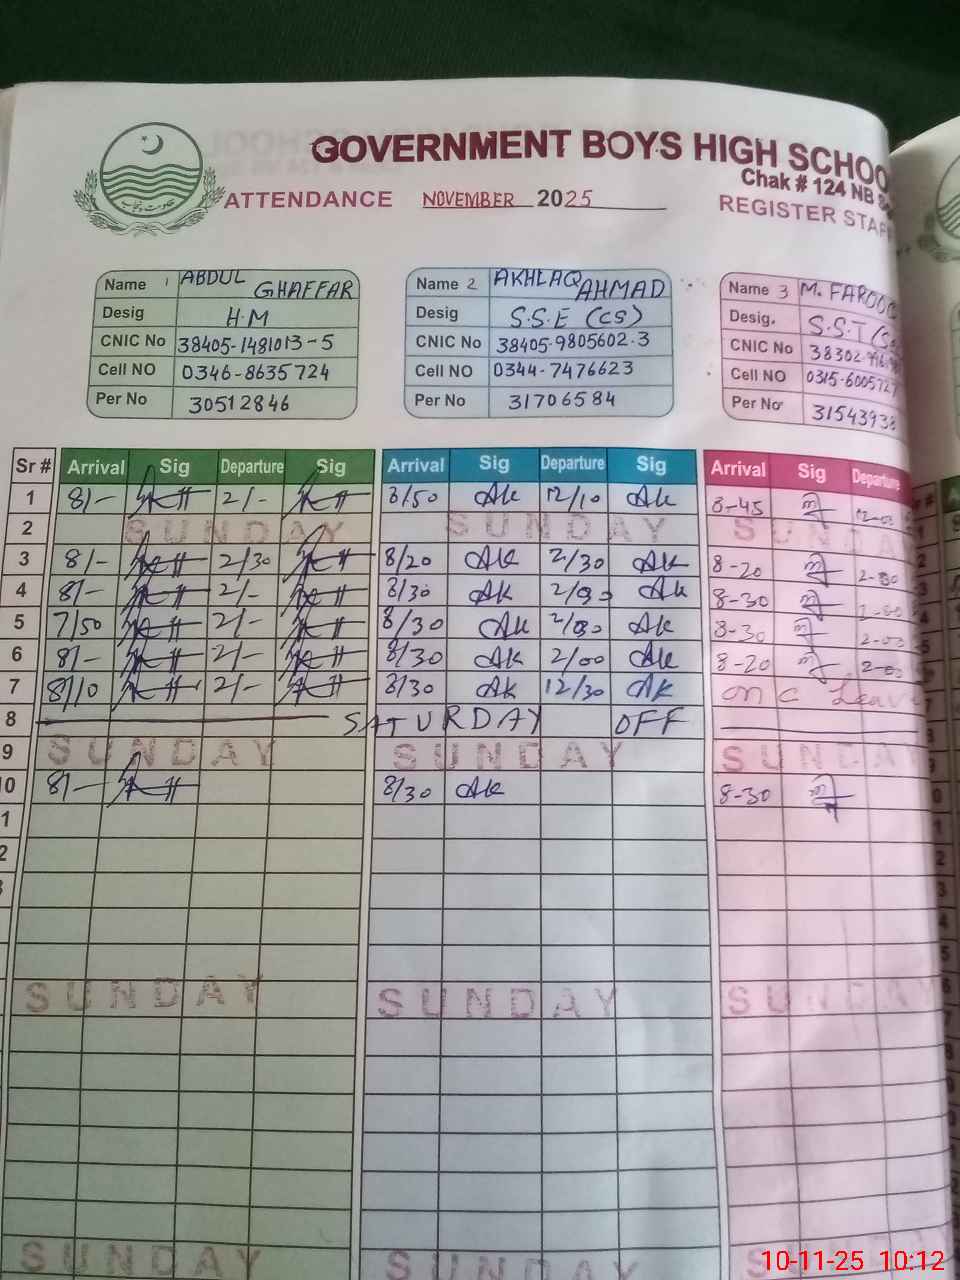 GOVERNMENT BOYS HIGH SCHOO
Chak # 124 NB S
ATTENDANCE NOVEMBER 2025
REGISTER STAF
Name 1 ABDUL GHAFFAR
Desig H.M
CNIC No 38405-1481013-5
Cell NO 0346-8635724
Per No 30512846
Name 2 AKHLAQ AHMAD
Desig S.S.E (CS)
CNIC No 38405-9805602-3
Cell NO 0344-7476623
Per No 31706584
Name 3 M. FAROO
Desig. S.S.T
CNIC No 38302-
Cell NO 0315-600572
Per No 3154393
Sr # Arrival Sig Departure Sig Arrival Sig Departure Sig Arrival Sig Departure
1 8/- 2/- 8/50 Ak 12/10 Ak 8-45
2 SUNDAY SUNDAY SUNDAY
3 8/- 2/30 8/20 Ak 2/30 Ak 8-20
4 8/- 2/- 8/30 Ak Ak 8-30
5 7/50 2/- 8/30 Ak Ak 8-30
6 8/- 2/- 8/30 Ak 2/00 Ak 8-20
7 8/10 2/- 8/30 Ak 12/30 Ak on C Leave
8 SATURDAY OFF
9 SUNDAY SUNDAY SUNDAY
10 8/- 8/30 Ak 8-30
SUNDAY SUNDAY SUNDAY
SUNDAY SUNDAY SUNDAY
10-11-25 10:12